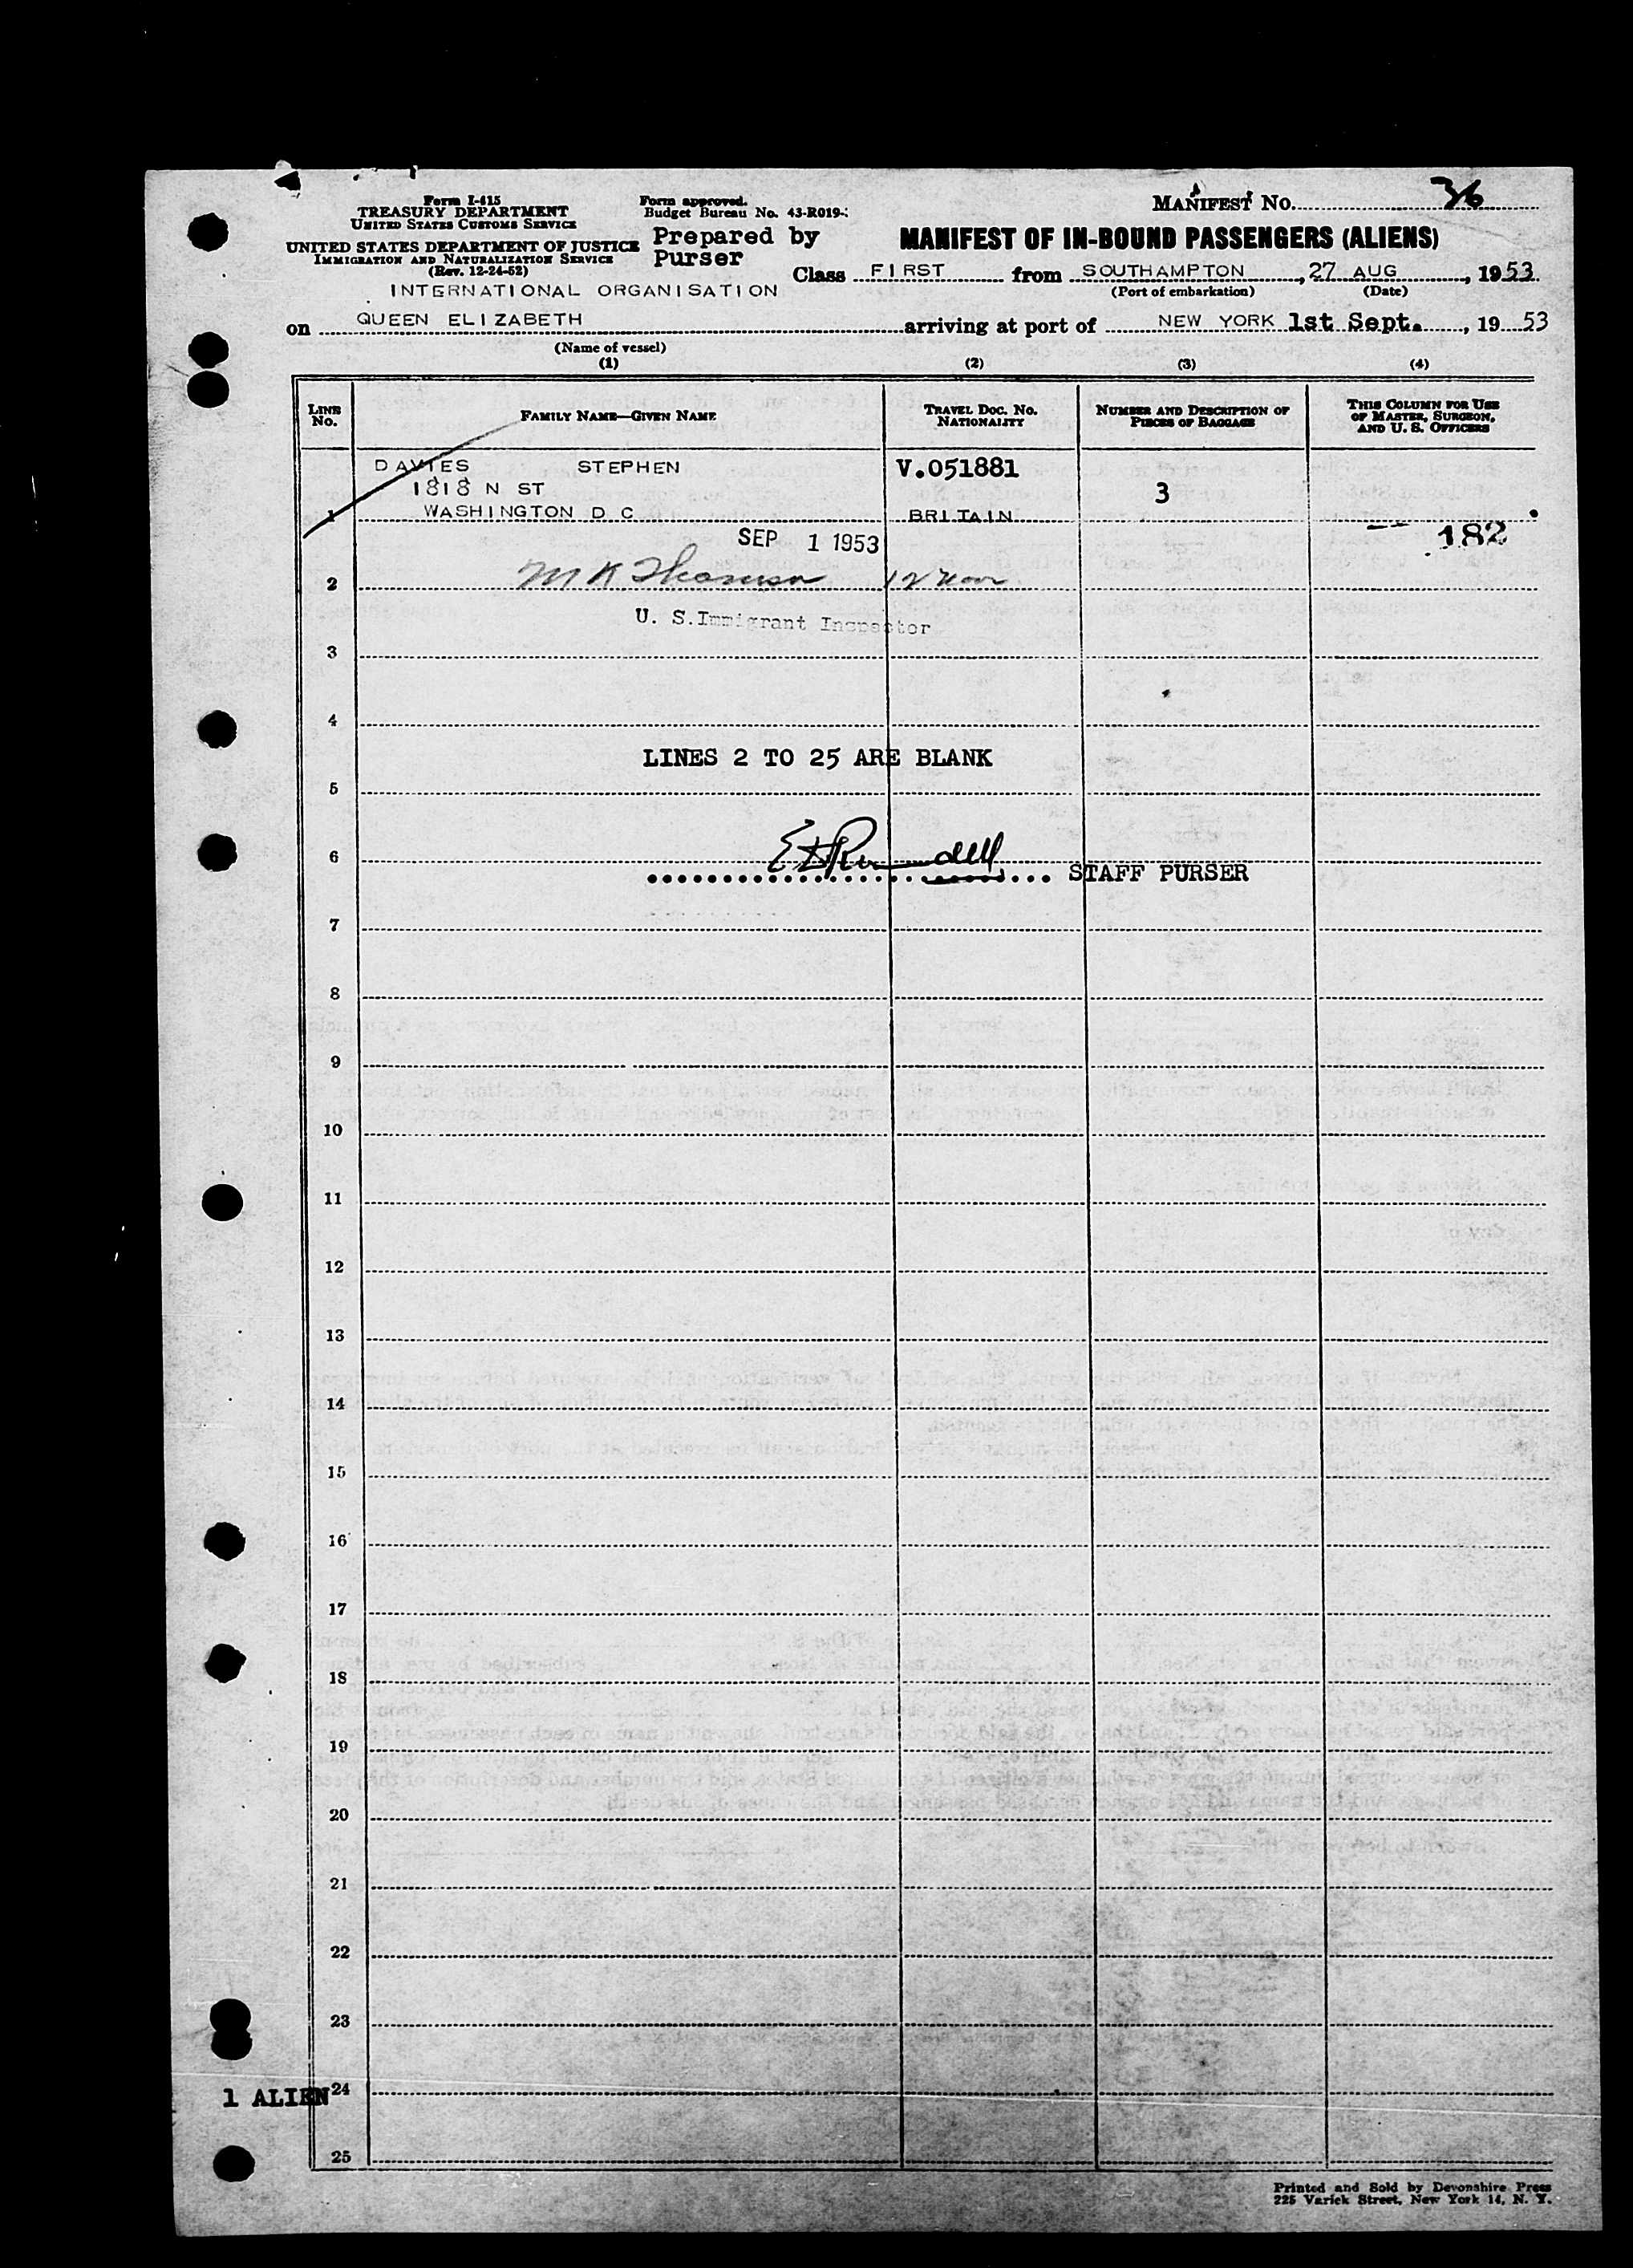 Form I-415
TREASURY DEPARTMENT
UNITED STATES CUSTOMS SERVICE
UNITED STATES DEPARTMENT OF JUSTICE
IMMIGRATION AND NATURALIZATION SERVICE
(Rev. 12-24-52)
Form approved.
Budget Bureau No. 43-R019-
Prepared by
Purser
MANIFEST No. 36
MANIFEST OF IN-BOUND PASSENGERS (ALIENS)
Class FIRST from SOUTHAMPTON, 27 AUG, 1953.
(Port of embarkation) (Date)
INTERNATIONAL ORGANISATION
on QUEEN ELIZABETH arriving at port of NEW YORK 1st Sept., 1953
(Name of vessel)
(1) (2) (3) (4)
LINE No. FAMILY NAME—GIVEN NAME TRAVEL DOC. No. NATIONALITY NUMBER AND DESCRIPTION OF PIECES OF BAGGAGE THIS COLUMN FOR USE OF MASTER, SURGEON, AND U. S. OFFICERS
DAVIES STEPHEN V.051881
1818 N ST 3
1 WASHINGTON D C BRITAIN
SEP 1 1953 182
2 M K
U. S. Immigrant Inspector
3
4
LINES 2 TO 25 ARE BLANK
5
6
STAFF PURSER
7
8
9
10
11
12
13
14
15
16
17
18
19
20
21
22
23
1 ALIEN 24
25
Printed and Sold by Devonshire Press
225 Varick Street, New York 14, N. Y.